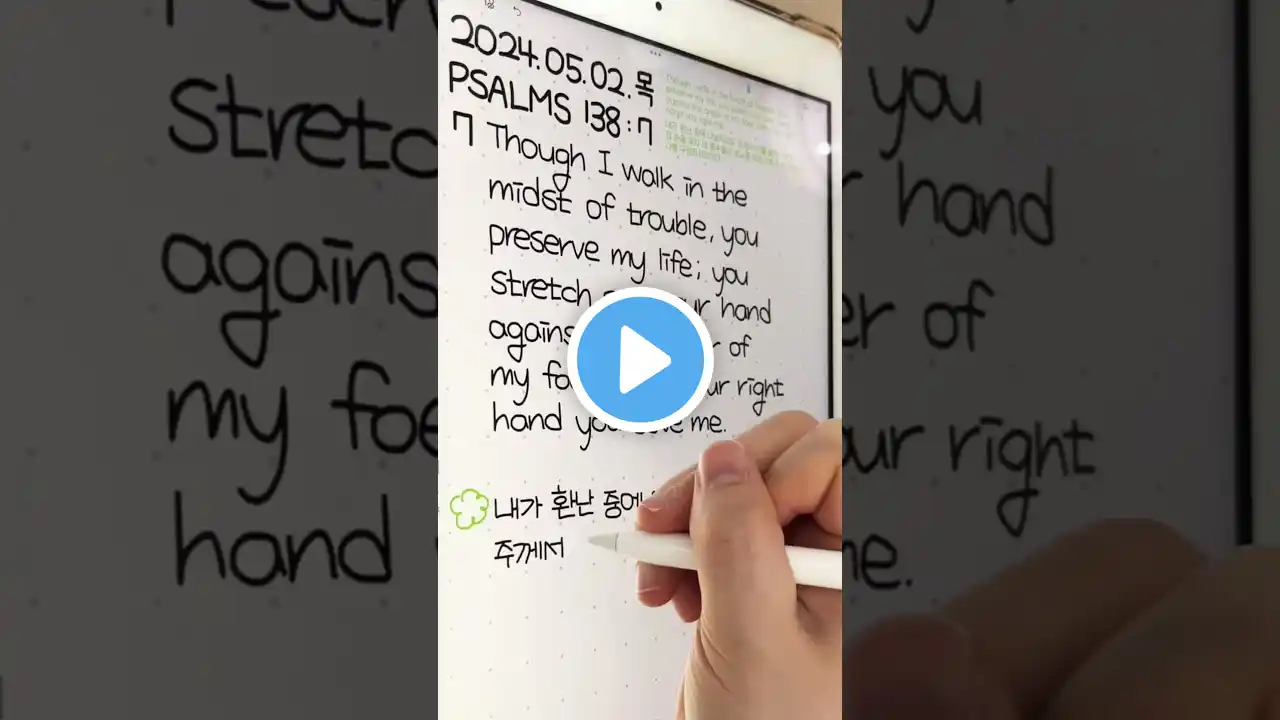 2024.05.02.목
PSALMS 138:7
7 Though I walk in the
midst of trouble, you
preserve my life; you
stretch hand
of
my right
hand me.
내가 환난 중에
주께서